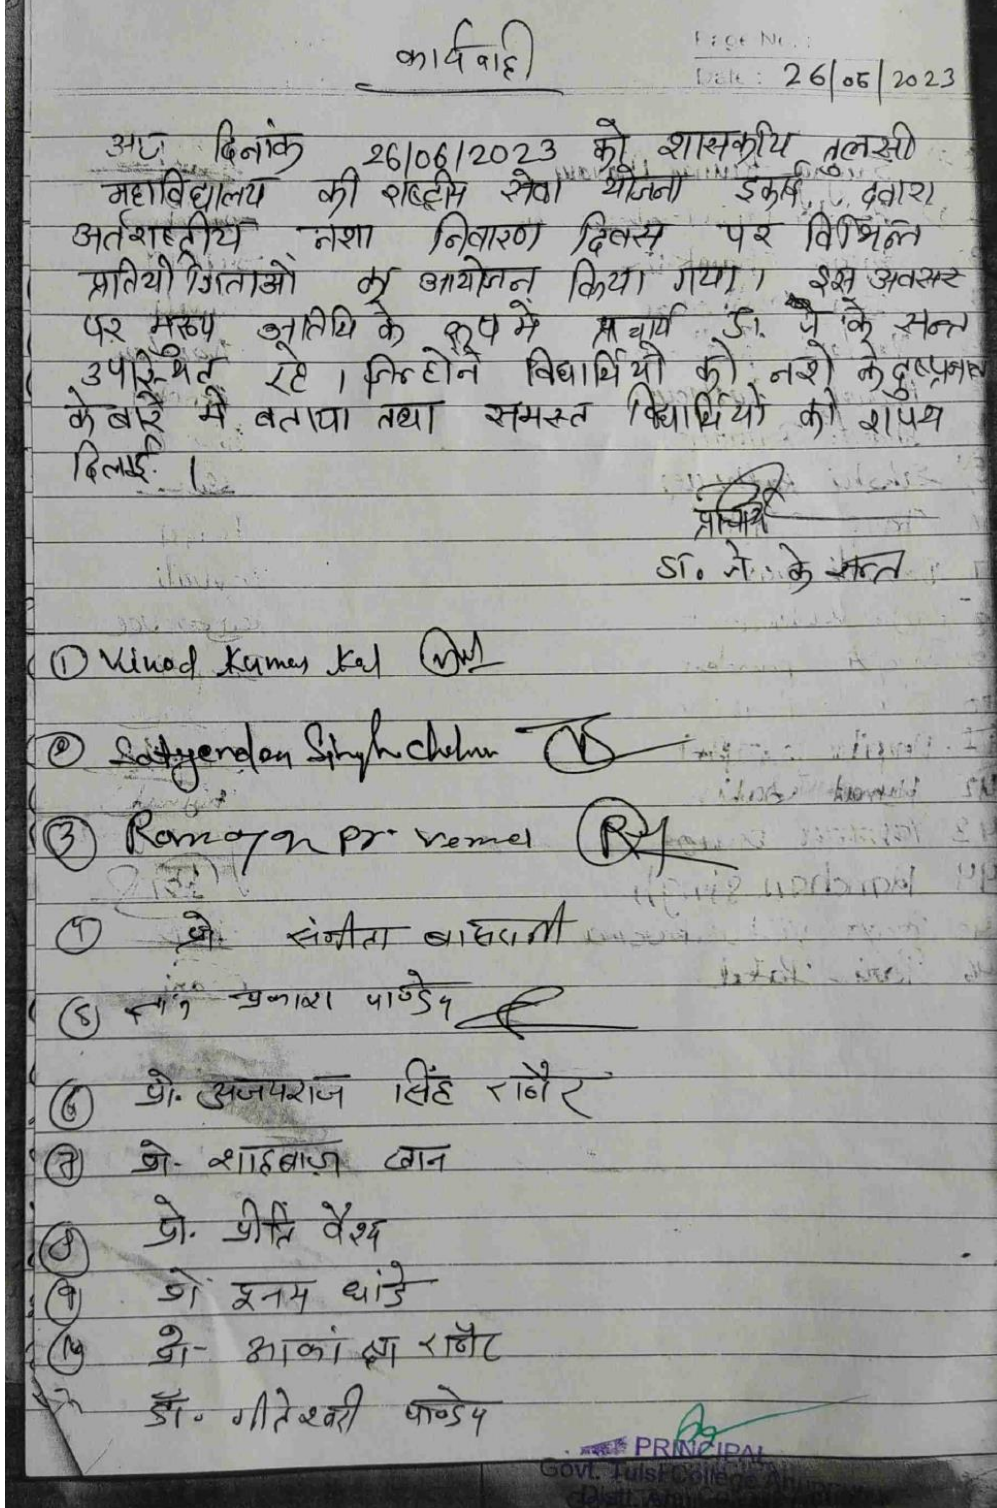 कार्यवाही
Page No.:
Date: 26/06/2023
आज दिनांक 26/06/2023 को शासकीय तुलसी
महाविद्यालय की राष्ट्रीय सेवा योजना इकाई द्वारा
अर्तराष्ट्रीय नशा निवारण दिवस पर विभिन्न
प्रतियोगिताओं का आयोजन किया गया। इस अवसर
पर मुख्य अतिथि के रूप में प्राचार्य डा. जे के सन्त
उपस्थित रहे। जिन्होने विद्यार्थियों को नशे के दुष्प्रभाव
के बारे में बताया तथा समस्त विद्यार्थियों को शपथ
दिलाई।
प्राचार्य
डा. जे. के सन्त
① Vinod Kumar Kol
② Satyendra Singh
③ Ramayan pr. Verma
④ प्रो. संगीता बासरानी
⑤ प्रकाश पाण्डेय
⑥ प्रो. अजयराज सिंह राठौर
⑦ प्रो- शाहबाज़ खान
⑧ प्रो. प्रीति वैश्य
⑨ प्रो पूनम धांडे
⑩ प्रो- आकांक्षा राठौर
डॉ. गीतेश्वरी पाण्डेय
PRINCIPAL
Govt. Tulsi College